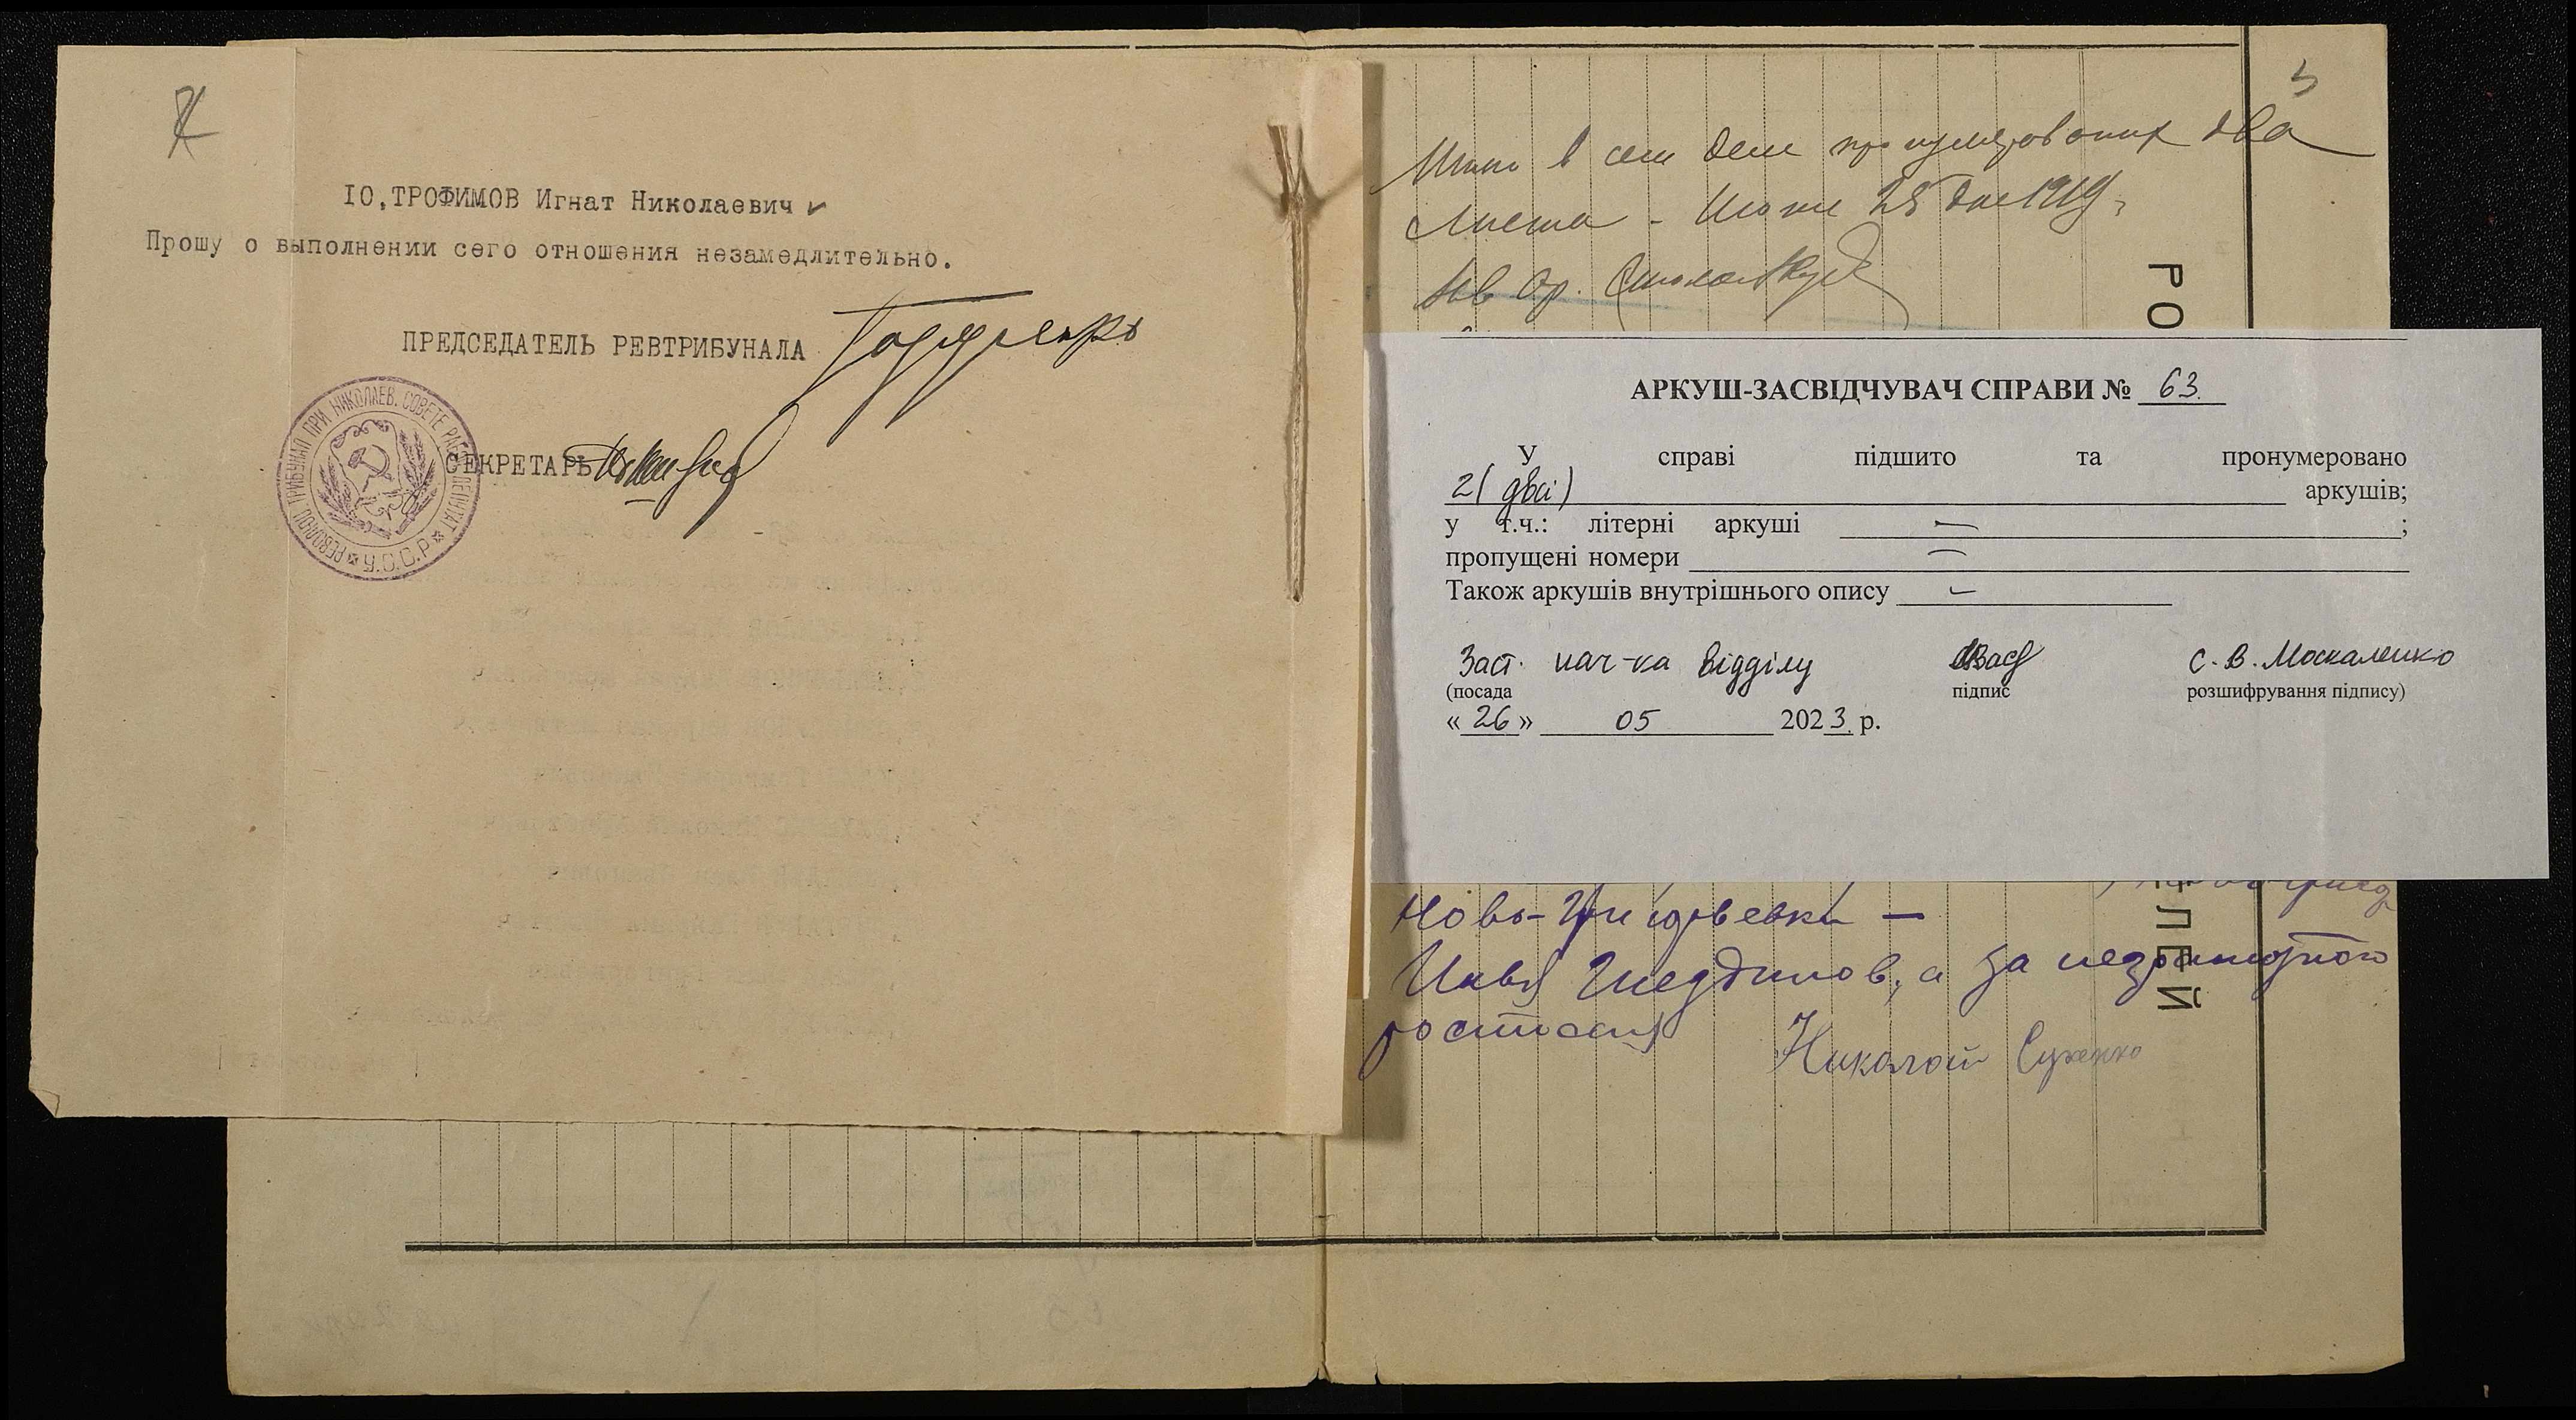 10,ТРОФИМОВ Игнат Николаевич
Прошу о выполнении сего отношения незамедлительно.
ПРЕДСЕДАТЕЛЬ РЕВТРИБУНАЛА
СЕКРЕТАРЬ
РЕВОЛЮЦ ТРИБУНАЛ ПРИ НИКОЛАЕВ. СОВЕТЕ РАБ ДЕПУТАТ
У.С.С.Р
3
в сем деле два
Листа - Июня 25 дня 1919
РО
АРКУШ-ЗАСВІДЧУВАЧ СПРАВИ № 63.
У справі підшито та пронумеровано
2 (два) аркушів;
у т.ч.: літерні аркуші — ;
пропущені номери —
Також аркушів внутрішнього опису —
Заст. нач-ка відділу С.В. Москаленко
(посада підпис розшифрування підпису)
« 26 » 05 2023. р.
ЛЕЙ
Ново- —
а за неграмотного
Николай